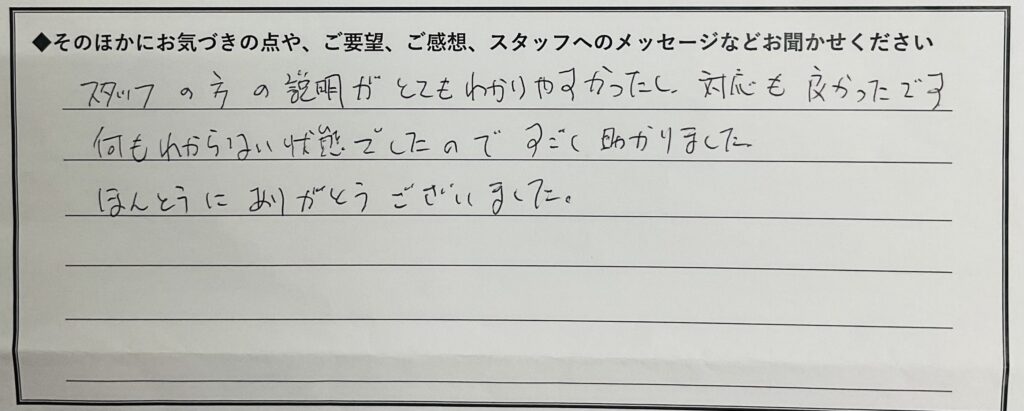 ◆そのほかにお気づきの点や、ご要望、ご感想、スタッフへのメッセージなどお聞かせください
スタッフの方の説明がとてもわかりやすかったし、対応も良かったです
何もわからない状態でしたのですごく助かりました
ほんとうにありがとうございました。